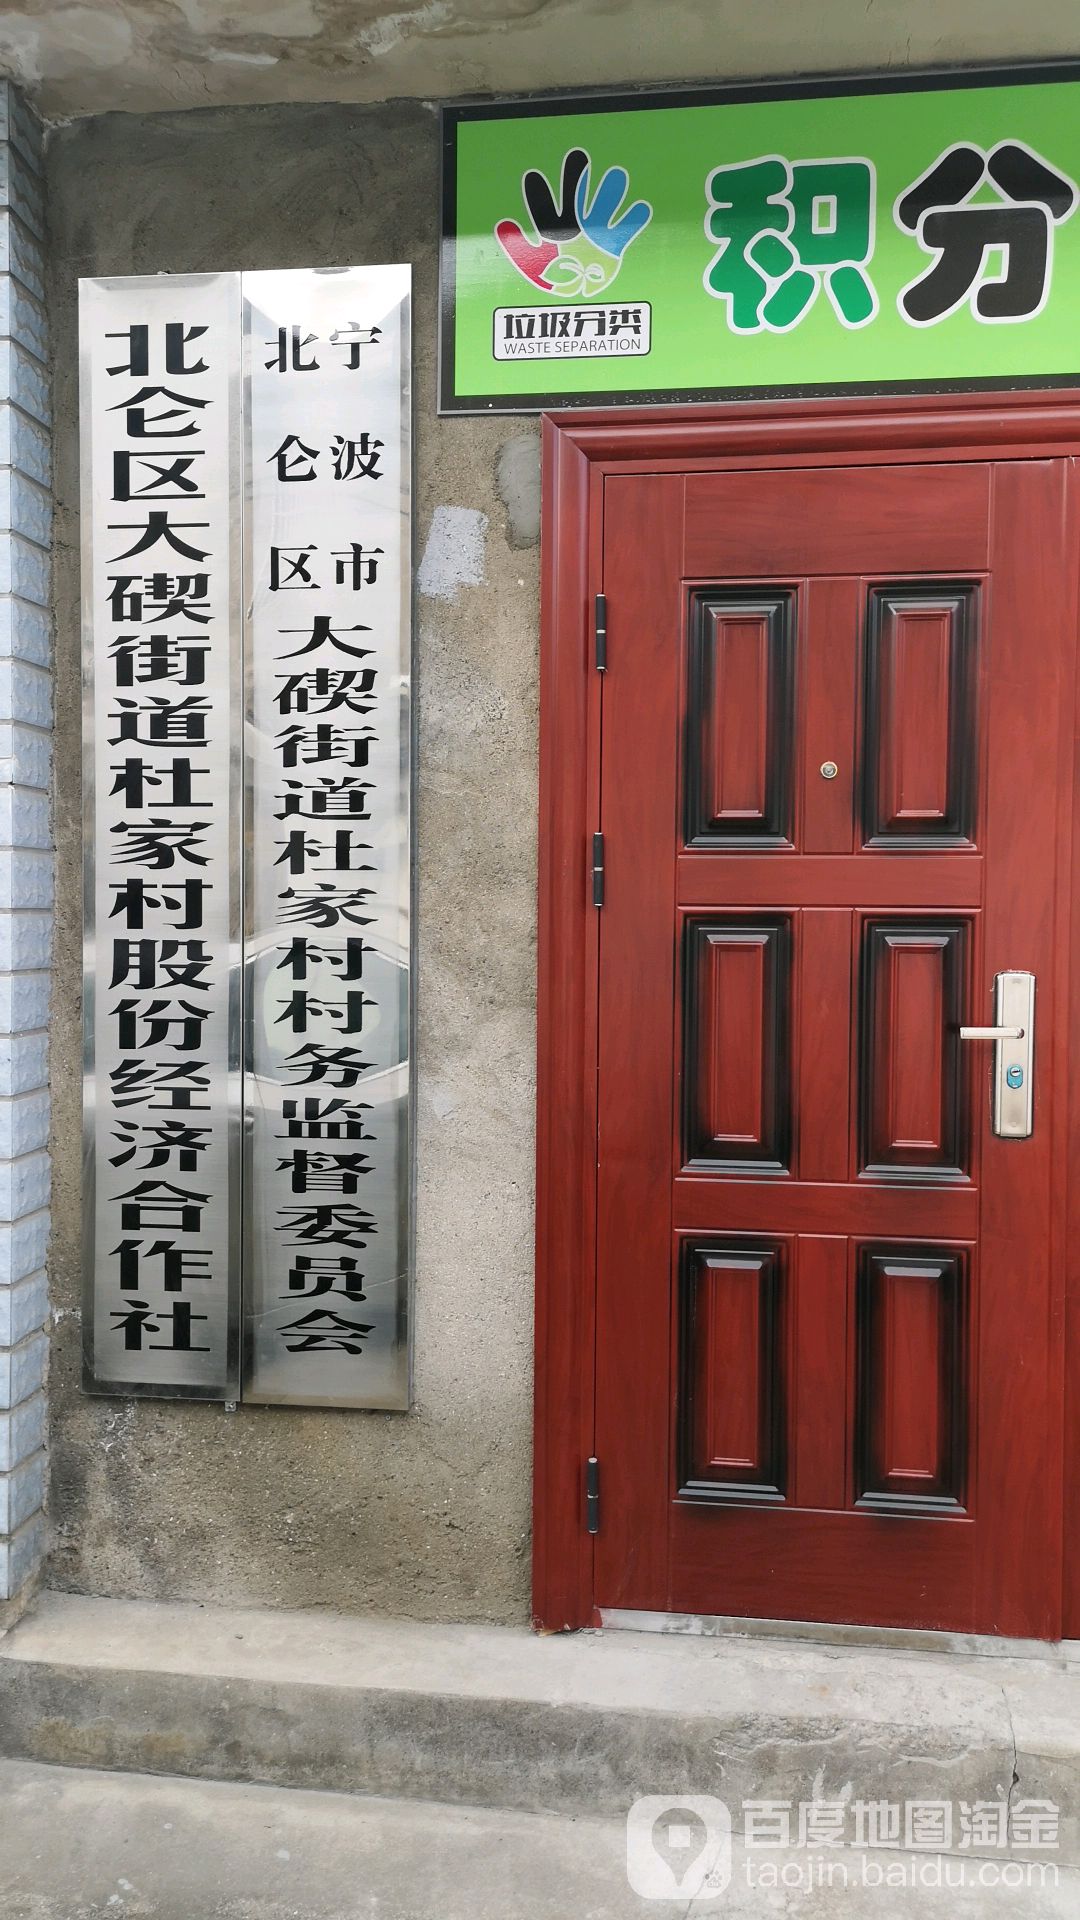 积分
垃圾分类
WASTE SEPARATION
宁波市
北仑区
大碶街道杜家村村务监督委员会
北仑区大碶街道杜家村股份经济合作社
百度地图淘金
taojin.baidu.com